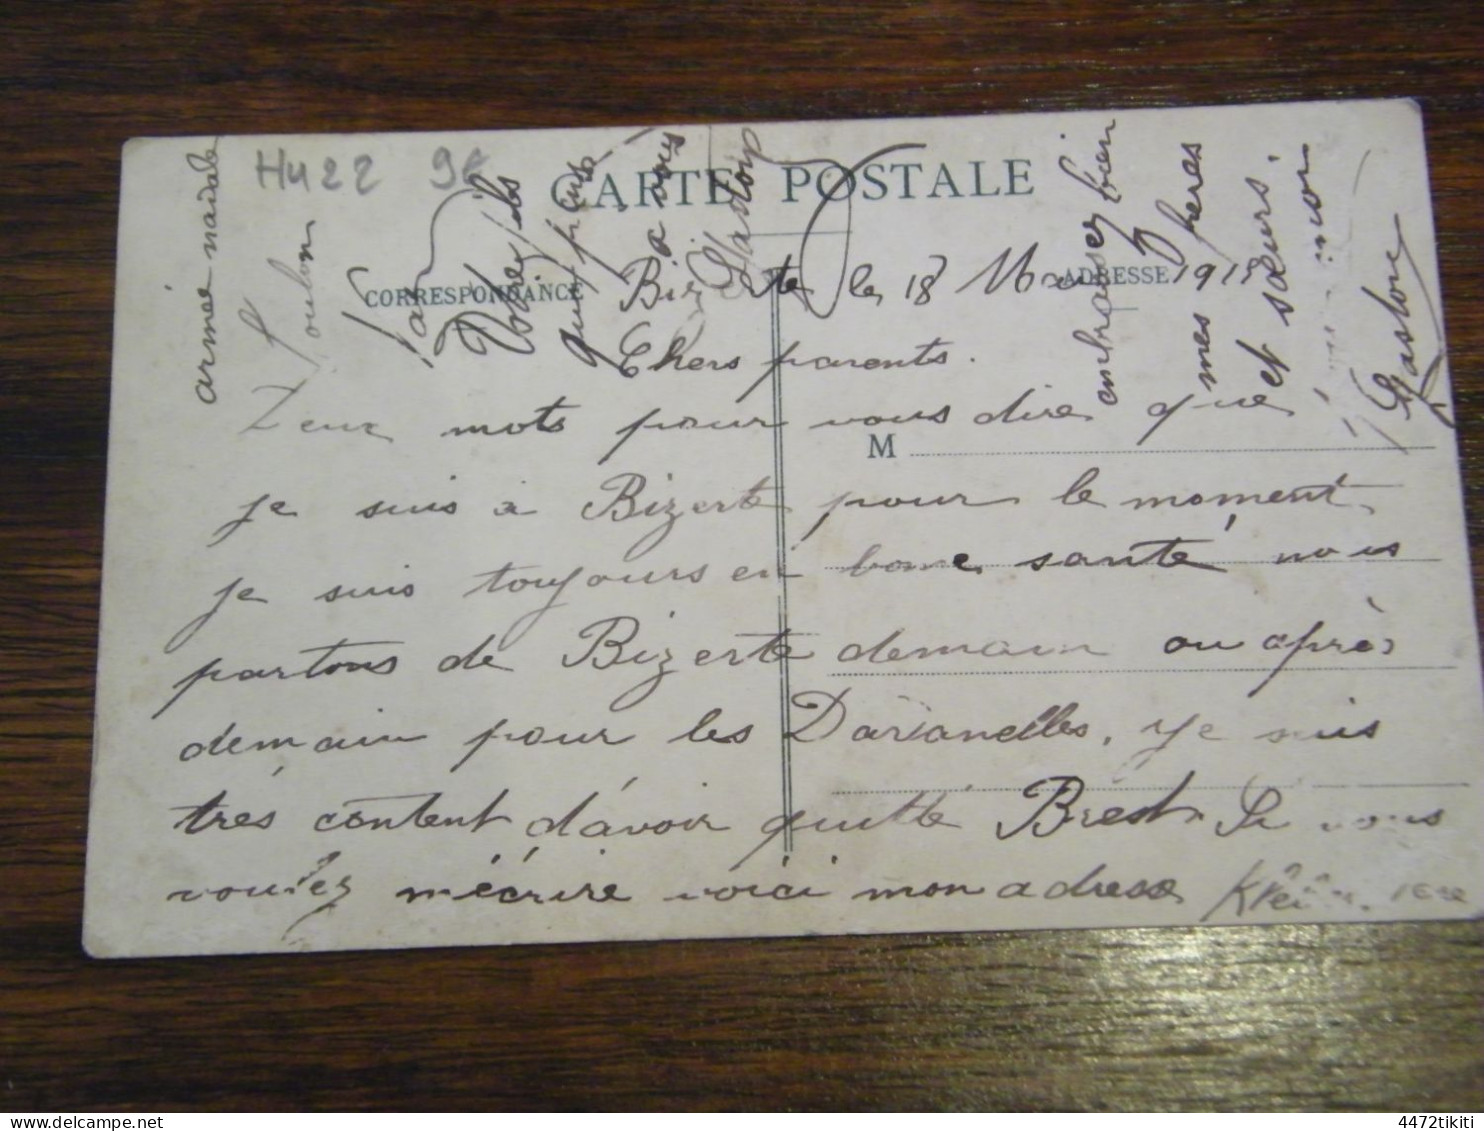 Hu 22 9€
CARTE POSTALE
CORRESPONDANCE
ADRESSE
M
Bizerte le 18 Mai 1915
Chers parents.
Deux mots pour vous dire que
je suis à Bizerte pour le moment
je suis toujours en bonne santé nous
partons de Bizerte demain ou après
demain pour les Dardanelles, je suis
très content d'avoir quitté Brest. Si vous
voulez m'écrire voici mon adresse
armée navale
Toulon
Votre fils
qui pense
à vous
Gaston
embrassez bien
mes freres
et sœurs.
Gaston
4472tikiti